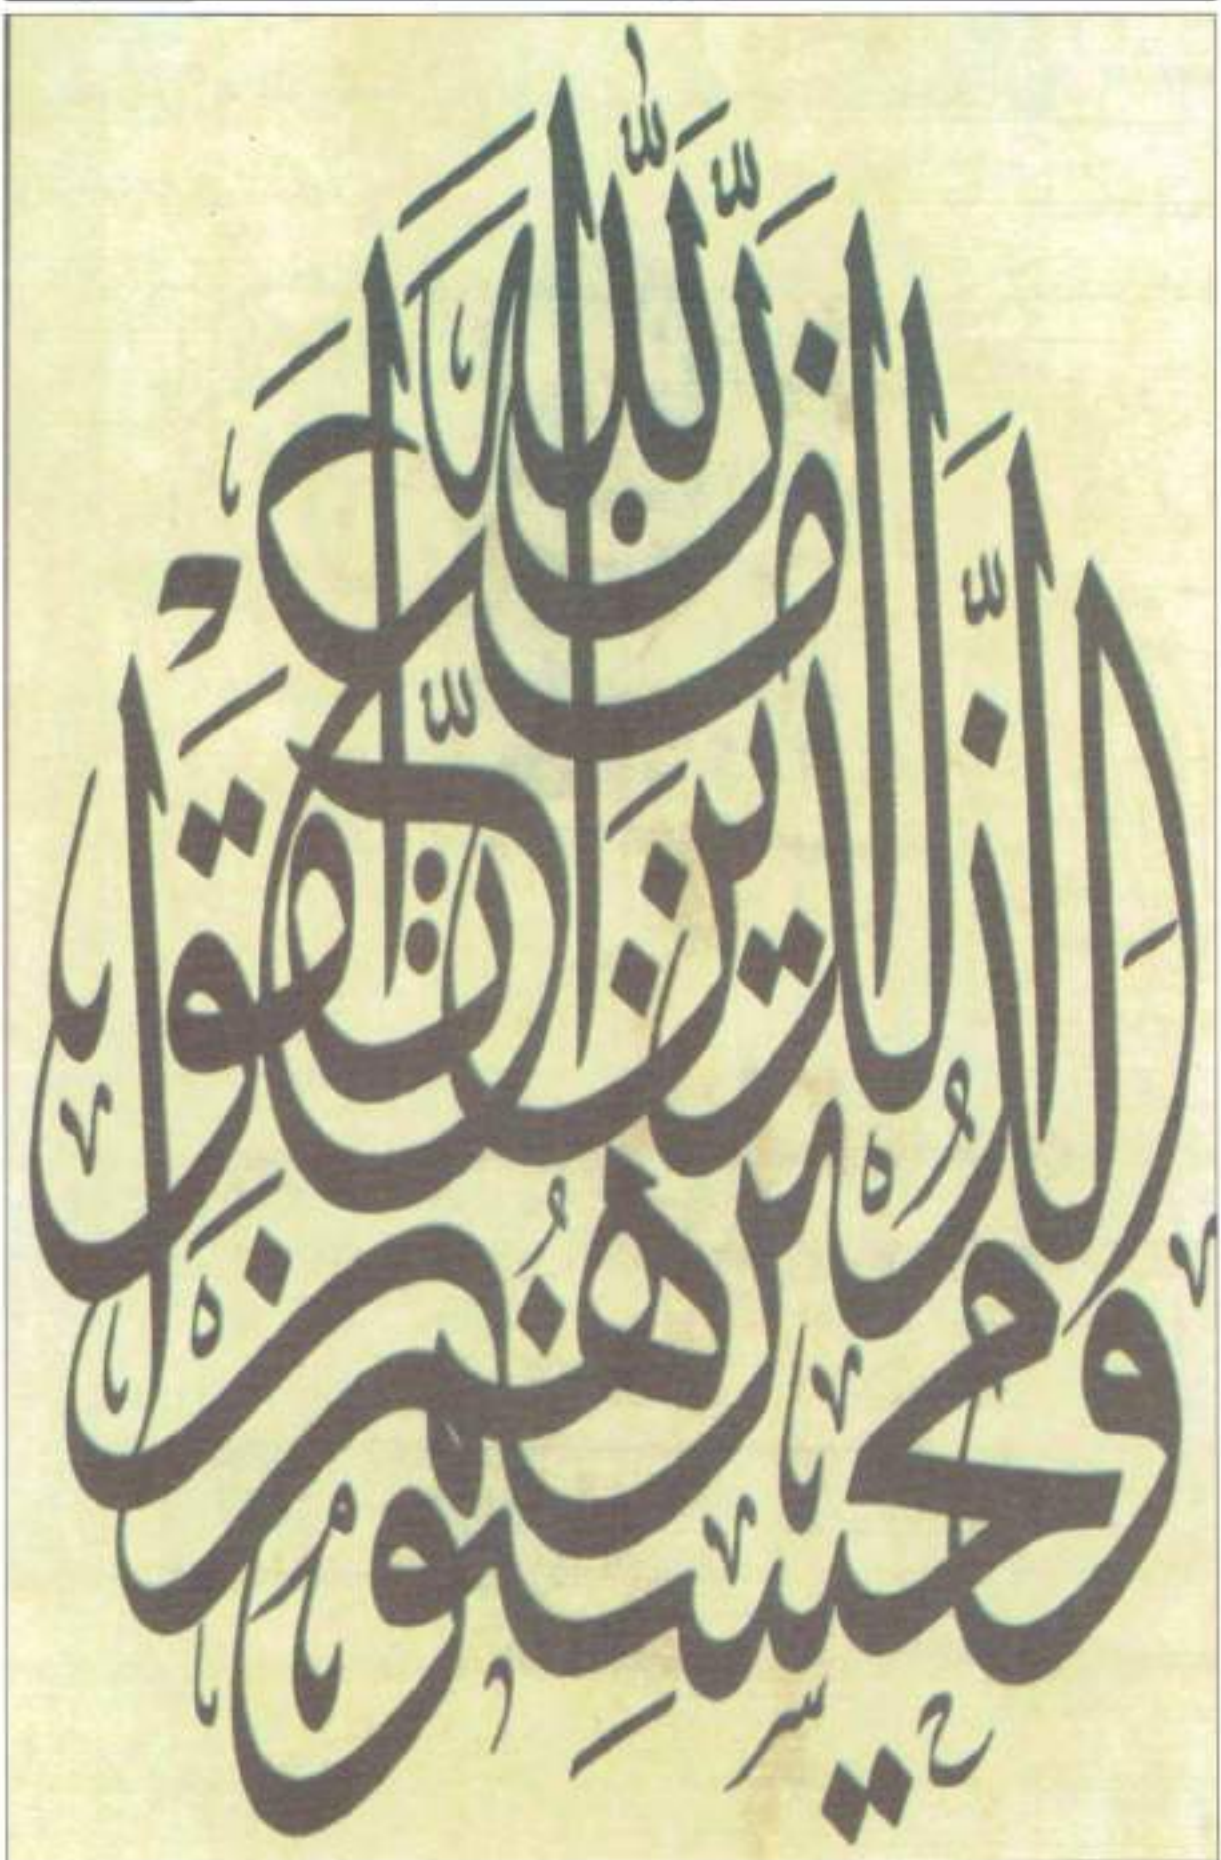 إِنَّ اللَّهَ مَعَ الَّذِينَ اتَّقَوْا وَالَّذِينَ هُمْ مُحْسِنُونَ